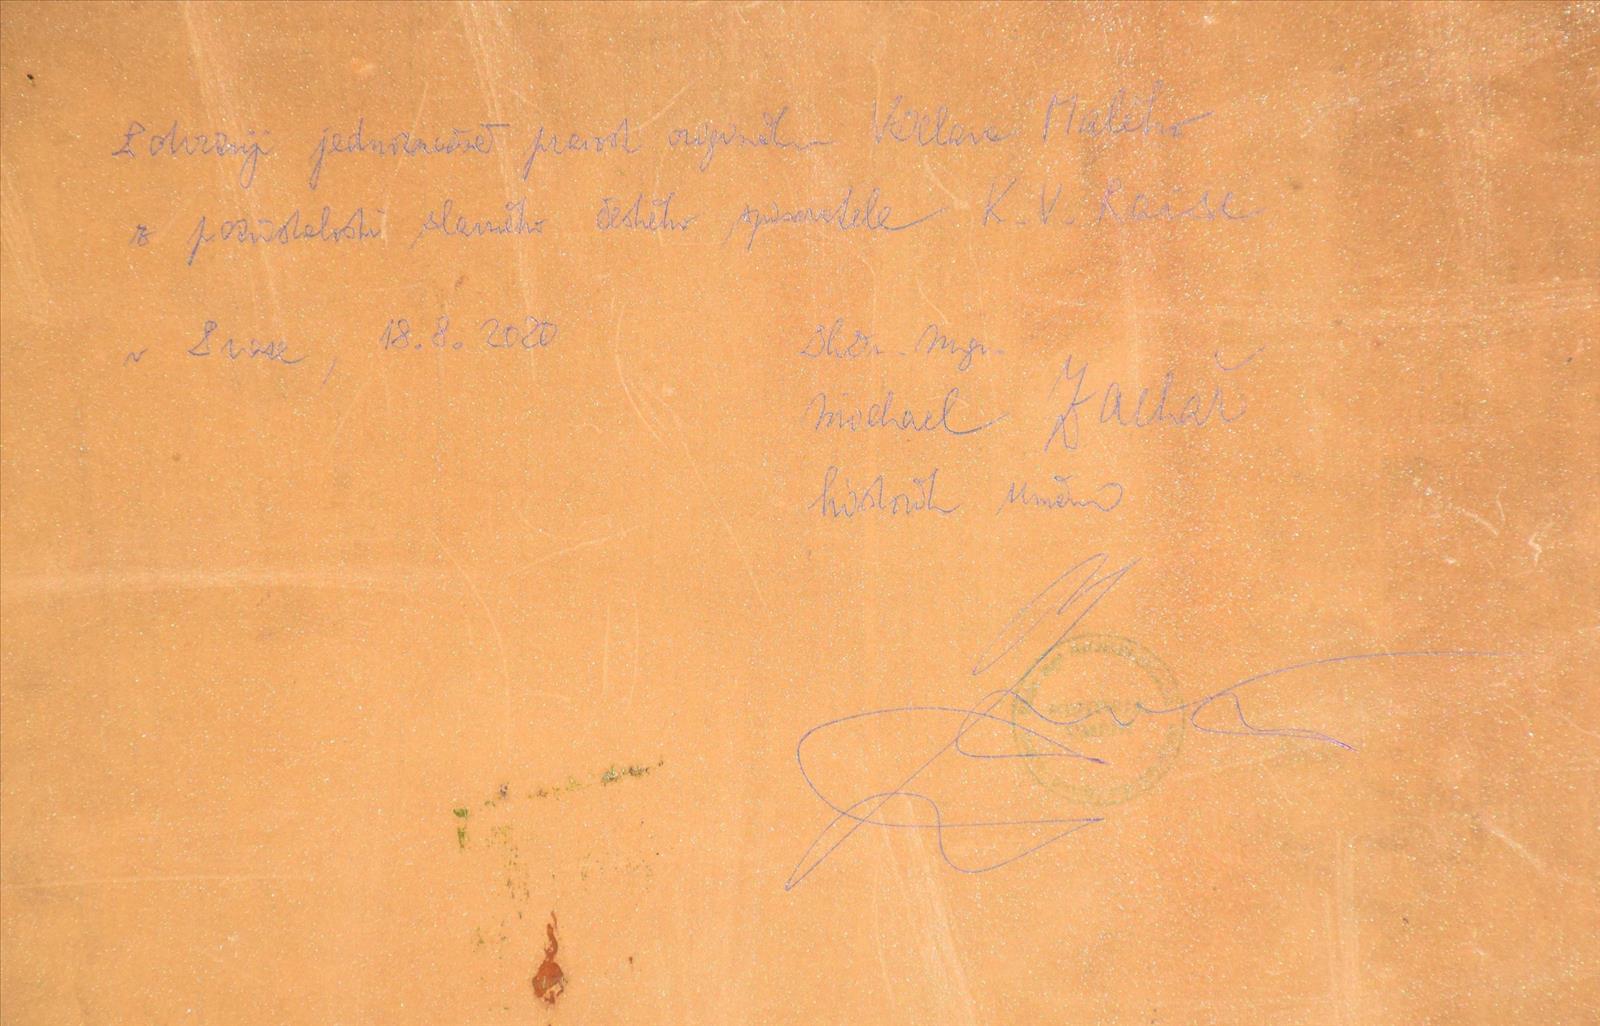 Potvrzuji jednoznačně pravost originálu Václava Malého
z pozůstalosti slavného českého spisovatele K. V. Raise
v Praze, 18.8.2020
PhDr. Mgr.
Michael Zachař
historik umění